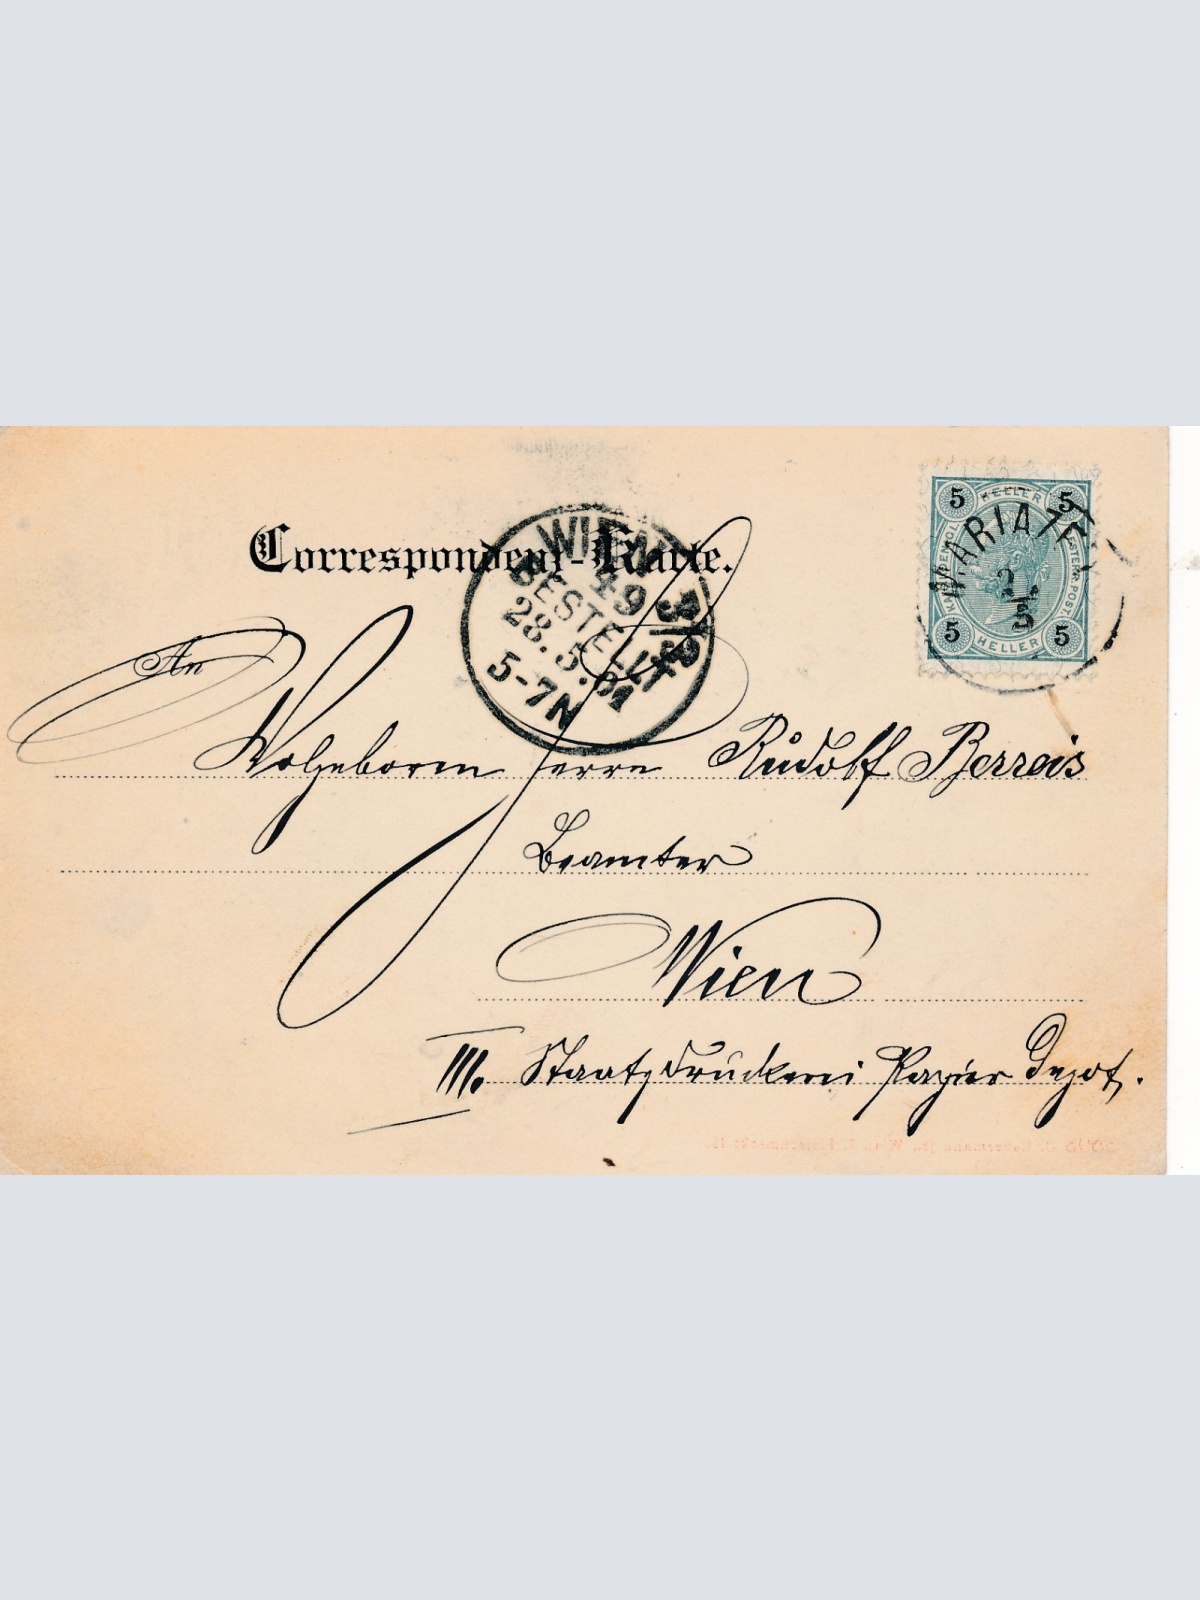 Correspondenz-Karte.
WIEN
49 3/2
BESTELLT
28.5.01
5-7N
5 HELLER 5
5 HELLER 5
MARIATE
An
Wolgeborenn Herrn Rudolf Berreis
Beamter
Wien
III. Staatsdruckerei Papier Depot.